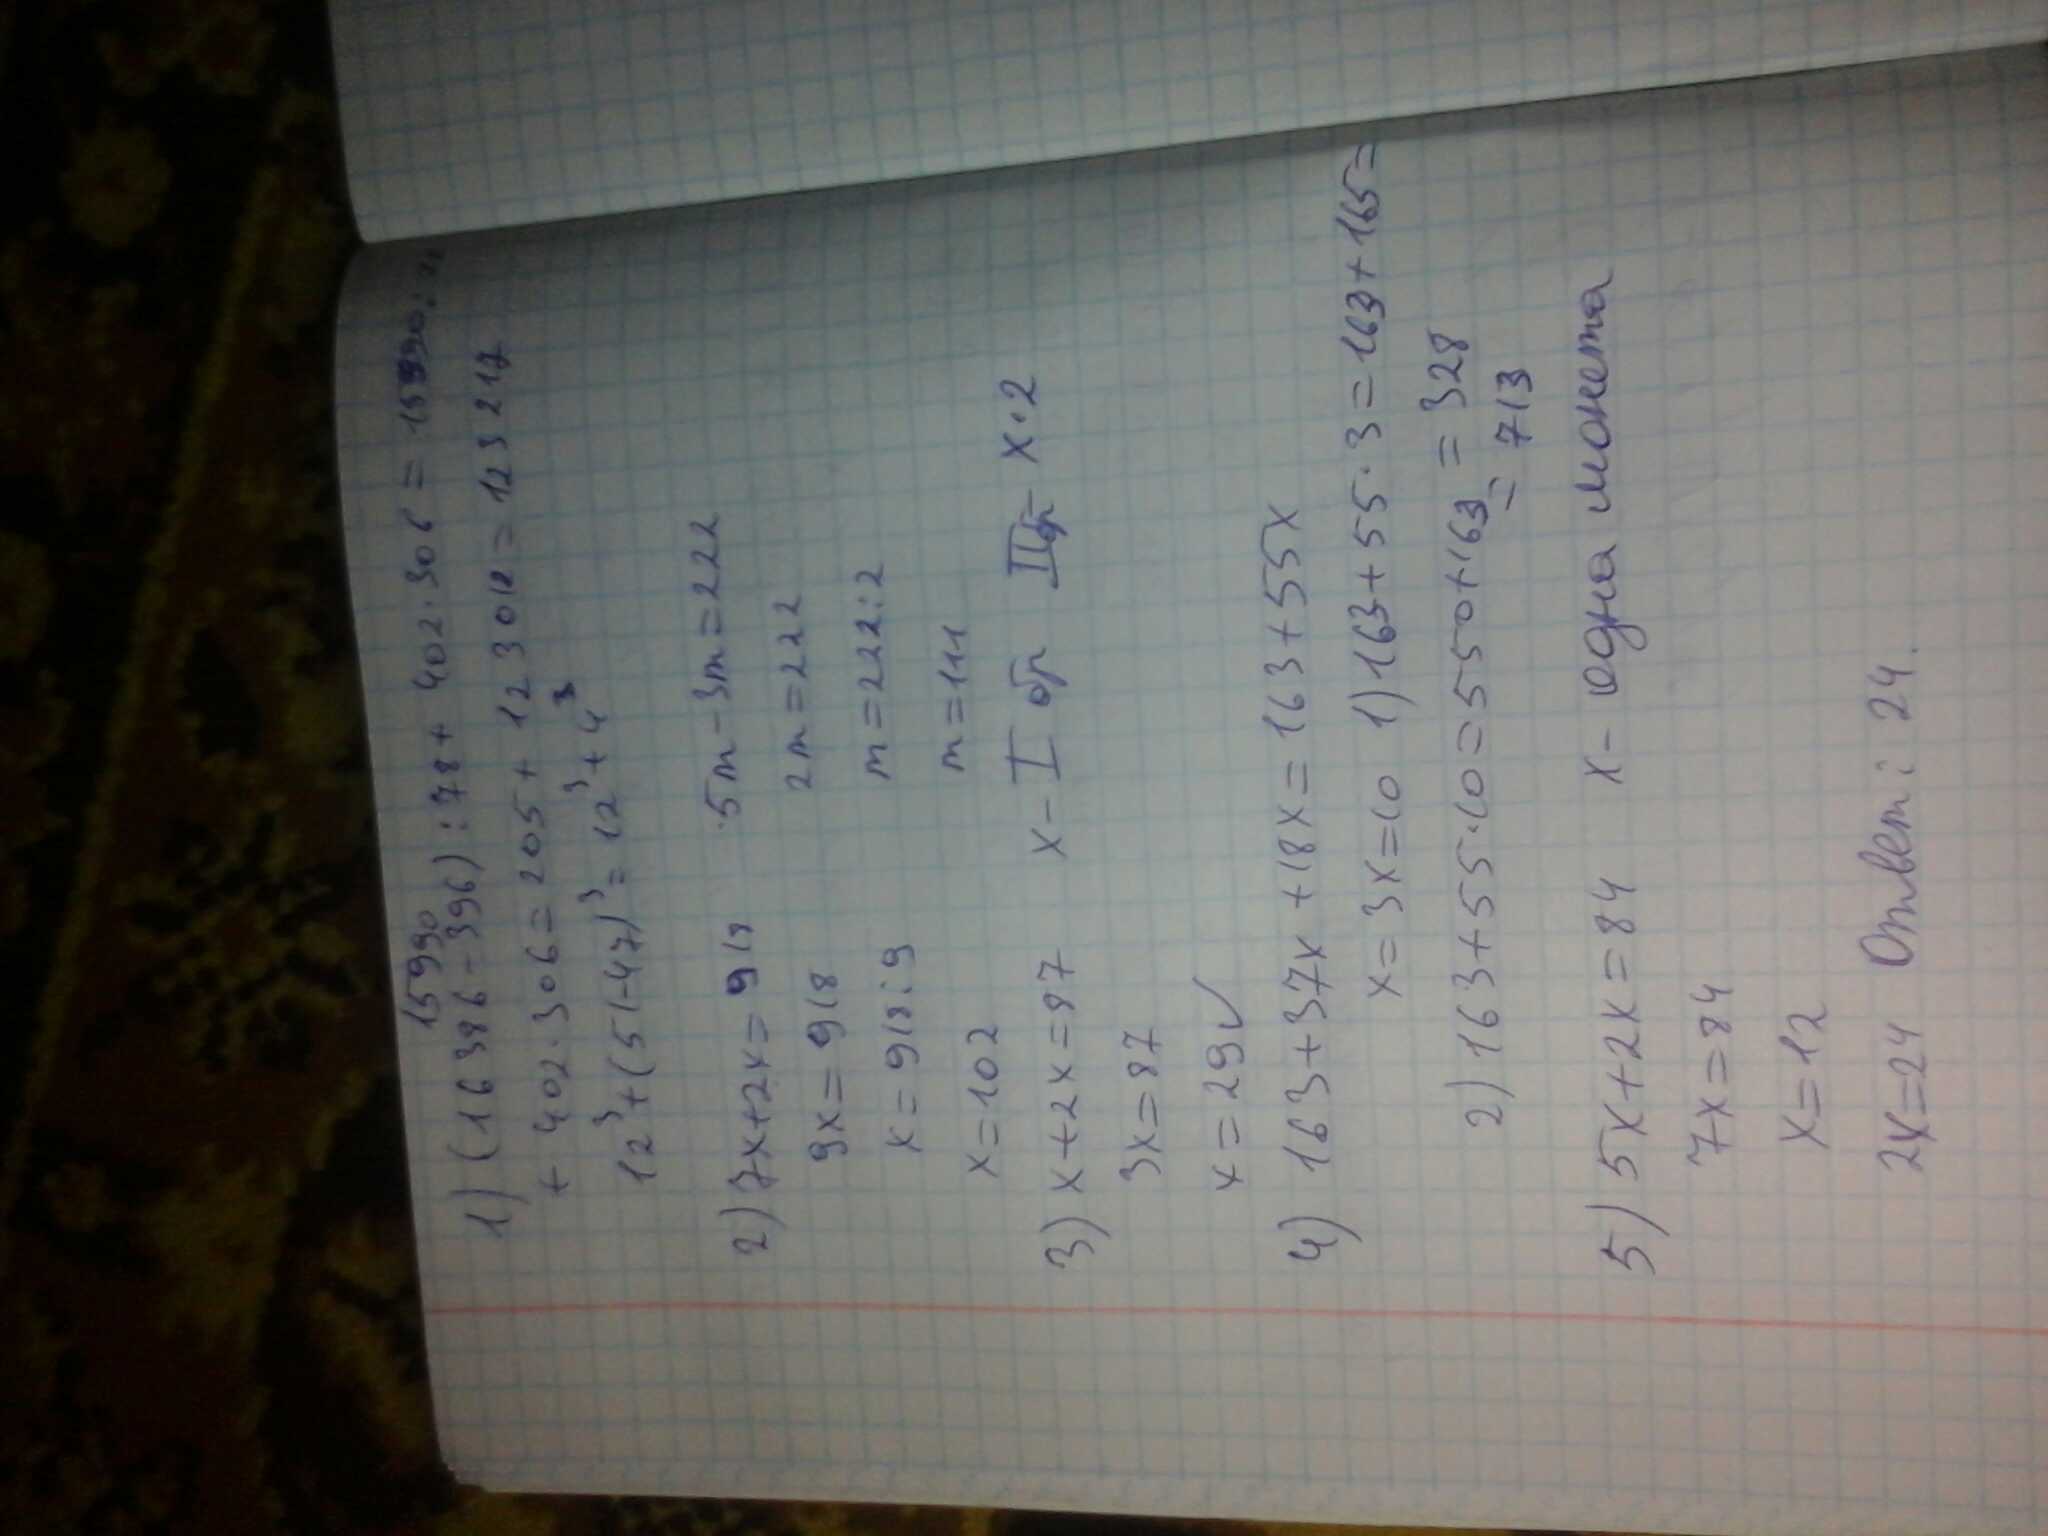 15990
1) (16386-396):78+ 402·306=15990:
+ 402·306=205+123012=123217
12³+(51-47)³=12³+4³
2) 7x+2x=918 5m-3m=222
9x=918 2m=222
x=918:9 m=222:2
x=102 m=111
3) x+2x=87 x-I бр II бр x·2
3x=87
x=29✓
4) 163+37x+18x=163+55x
x=3x=10 1) 163+55·3=163+165=
=328
2) 163+55·10=550+163=
=713
5) 5x+2x=84 x- одна монета
7x=84
x=12
2x=24 Ответ: 24.